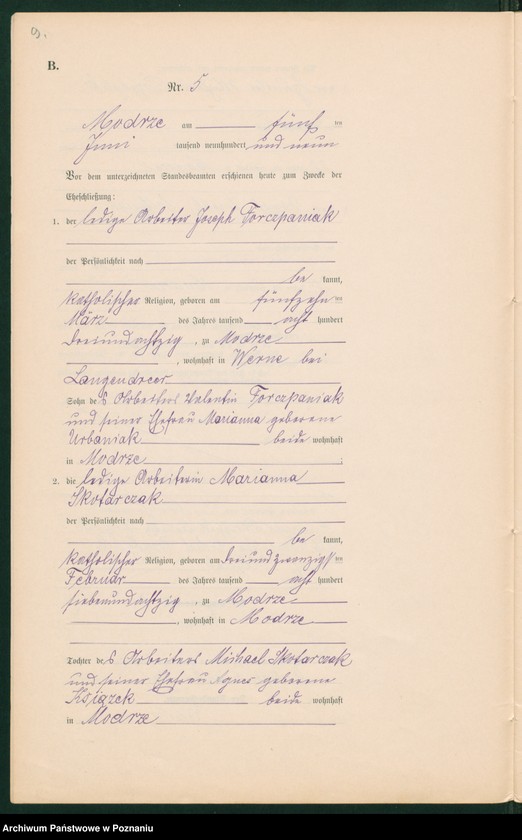 9.
B.
Nr. 5
Modrze am fünf ten
Juni tausend neunhundert und neun
Vor dem unterzeichneten Standesbeamten erschienen heute zum Zwecke der
Eheschließung:
1. der ledige Arbeiter Joseph Torczpaniak
der Persönlichkeit nach
be kannt,
katholischer Religion, geboren am fünfzehn ten
März des Jahres tausend acht hundert
dreiundachtzig, zu Modrze
, wohnhaft in Werne bei
Langendreer
Sohn des Arbeiters Valentin Torczpaniak
und seiner Ehefrau Marianna geborene
Urbaniak beide wohnhaft
in Modrze ;
2. die ledige Arbeiterin Marianna
Skotarczak
der Persönlichkeit nach
be kannt,
katholischer Religion, geboren am dreiundzwanzigs ten
Februar des Jahres tausend acht hundert
siebenundachtzig, zu Modrze
, wohnhaft in Modrze
Tochter des Arbeiters Michael Skotarczak
und seiner Ehefrau Agnes geborene
Książek beide wohnhaft
in Modrze
Archiwum Państwowe w Poznaniu